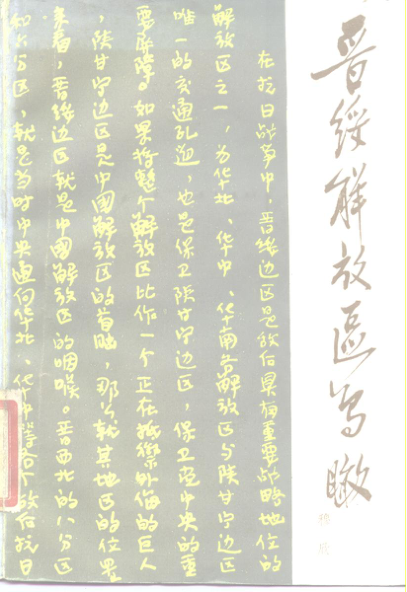 晉綏解放區鸟瞰
穆欣
在抗日战争中，晋绥边区是敌后具有重要战略地位的
解放区之一，为华北、华中、华南各解放区与陕甘宁边区
唯一的交通孔道，也是保卫陕甘宁边区，保卫党中央的重
要屏障。如果将整个解放区比作一个正在抵禦外侮的巨人
，陕甘宁边区是中國解放区的首脑，那么就其地区的位置
来看，晋绥边区就是中國解放区的咽喉。晋西北的八分区
分区，就是当时中央通向华北、华中等各个敌后抗日